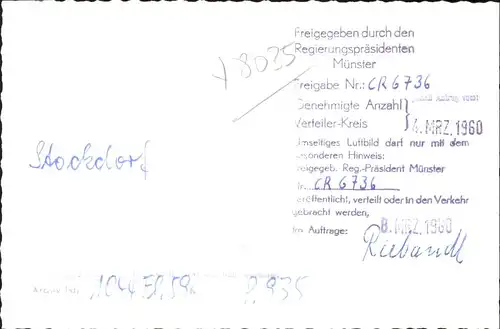 8035
Freigegeben durch den
Regierungspräsidenten
Münster
Freigabe Nr.: CR 6736
Genehmigte Anzahl
Verteiler-Kreis
4. MRZ. 1960
Umseitiges Luftbild darf nur mit dem
besonderen Hinweis:
Freigegeb. Reg.-Präsident Münster
Nr. CR 6736
veröffentlicht, verteilt oder in den Verkehr
gebracht werden,
Im Auftrage:
8. MRZ. 1960
Stockdorf
P. 935